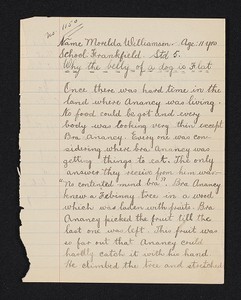 No 1150
Name Morelda Williamson. Age: 11 yrs
School Frankfield. Std 5.
Why the belly of a dog is Flat
Once there was hard time in the
land where Anancy was living.
No food could be got and every
body was looking very thin except
Bra Anancy. Every one was con-
sidering where bra Anancy was
getting things to eat. The only
answer they receive from him was-
"no contented mind bra". Bra Anancy
knew a tree in a wood
which was laden with fruits. Bra
Anancy picked the fruit till the
last one was left. This fruit was
so far out that Anancy could
hardly catch it with his hand.
He climbed the tree and stretched